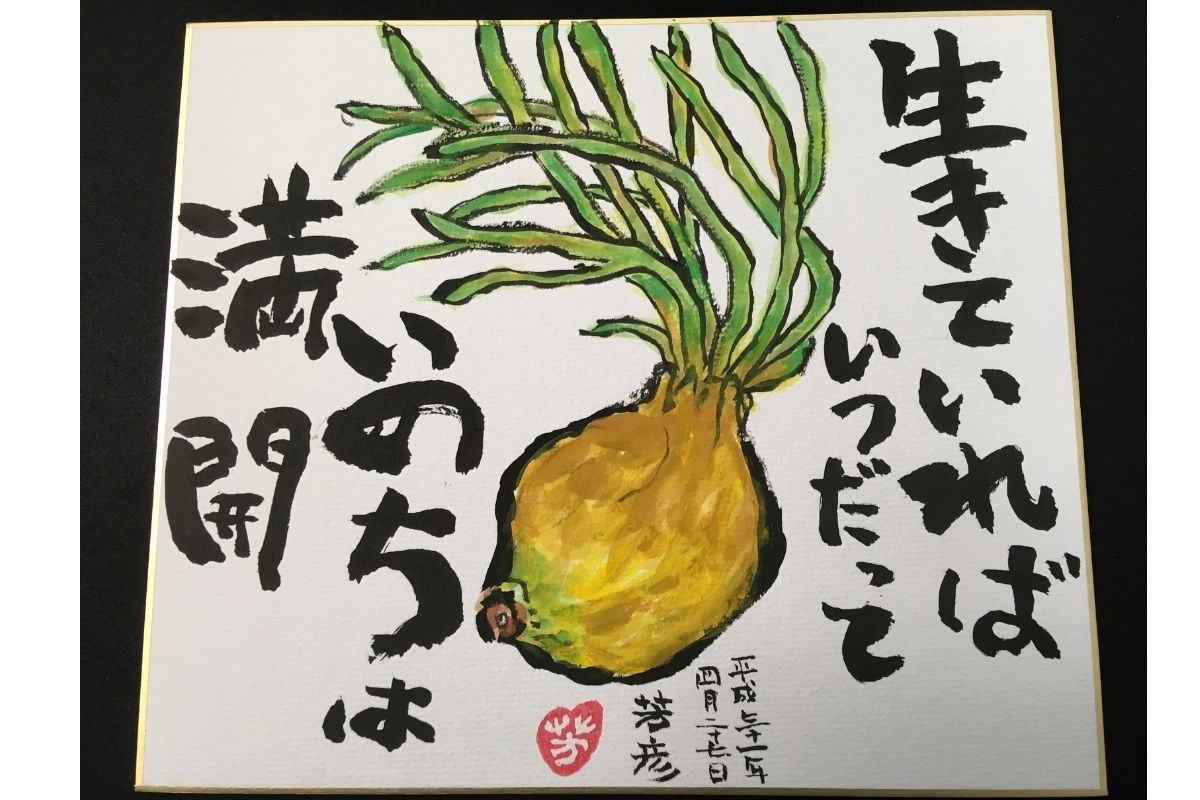 生きていれば
いつだって
いのちは
満開
平成三十一年
四月二十七日
芳彦
芳